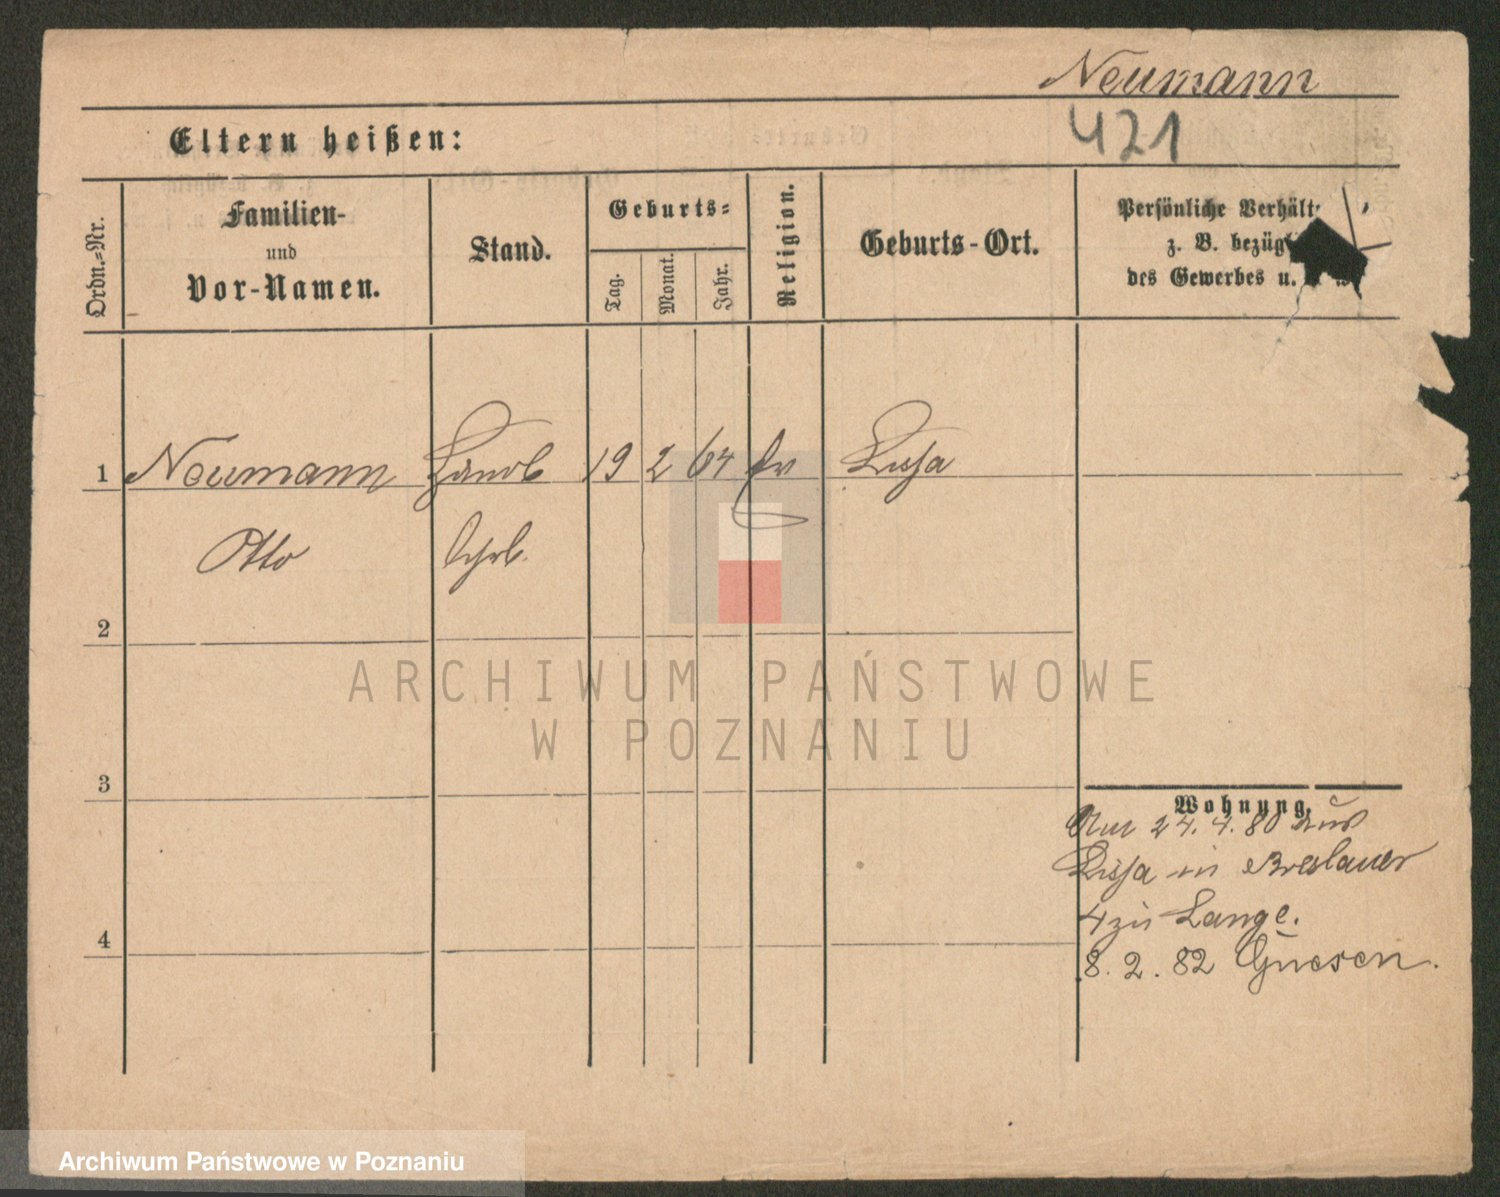 Neumann
Eltern heißen:
421
Ordn.-Nr.
Familien-
und
Vor-Namen.
Stand.
Geburts-
Tag.
Monat.
Jahr.
Religion.
Geburts-Ort.
Persönliche Verhält
z. B. bezügl
des Gewerbes u.
1 Neumann 19 2 64 Ev Lissa
Otto
2
3
Wohnung.
24. 4. 80 aus
Lissa in Breslauer
4 zu Lange.
4
8. 2. 82 Gnesen.
ARCHIWUM PAŃSTWOWE
W POZNANIU
Archiwum Państwowe w Poznaniu